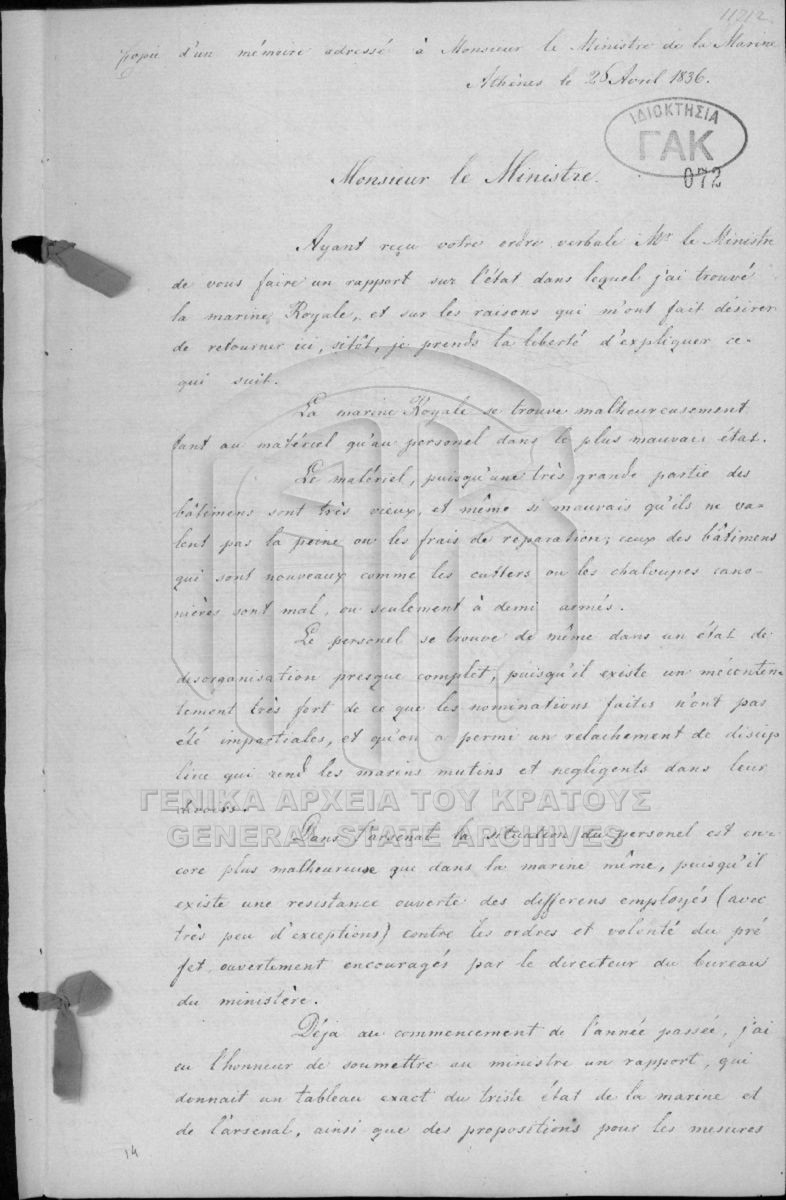 11212
Copie d'un mémoire adressé à Monsieur le Ministre de la Marine
Athènes le 26 Avril 1836.
ΙΔΙΟΚΤΗΣΙΑ
ΓΑΚ
072
Monsieur le Ministre.
Ayant reçu votre ordre verbale Mr le Ministre
de vous faire un rapport sur l'état dans lequel j'ai trouvé
la marine Royale, et sur les raisons qui m'ont fait désirer
de retourner ici, sitôt, je prends la liberté d'expliquer ce
qui suit.
La marine Royale se trouve malheureusement
tant au matériel qu'au personel dans le plus mauvais état.
Le matériel, puisqu'une très grande partie des
bâtimens sont très vieux, et même si mauvais qu'ils ne va-
lent pas la peine ou les frais de réparation; ceux des bâtimens
qui sont nouveaux comme les cutters ou les chaloupes cano-
nières sont mal, ou seulement à demi armés.
Le personel se trouve de même dans un état de
disorganisation presque complet, puisqu'il existe un mécenten-
tement très fort de ce que les nominations faites n'ont pas
été impartiales, et qu'on a permi un relachement de discip
line qui rend les marins mutins et negligents dans leur
devoirs.
ΓΕΝΙΚΑ ΑΡΧΕΙΑ ΤΟΥ ΚΡΑΤΟΥΣ
GENERAL STATE ARCHIVES
Dans l'arsenal la situation du personel est en-
core plus malheureuse que dans la marine même, puisqu'il
existe une resistance ouverte des differens employés (avec
très peu d'exceptions) contre les ordres et volonté du pré
fet, ouvertement encouragés par le directeur du bureau
du ministère.
Déja au commencement de l'année passée, j'ai
eu l'honneur de soumettre au ministre un rapport, qui
donnait un tableau exact du triste état de la marine et
de l'arsenal, ainsi que des propositions pour les mesures
14